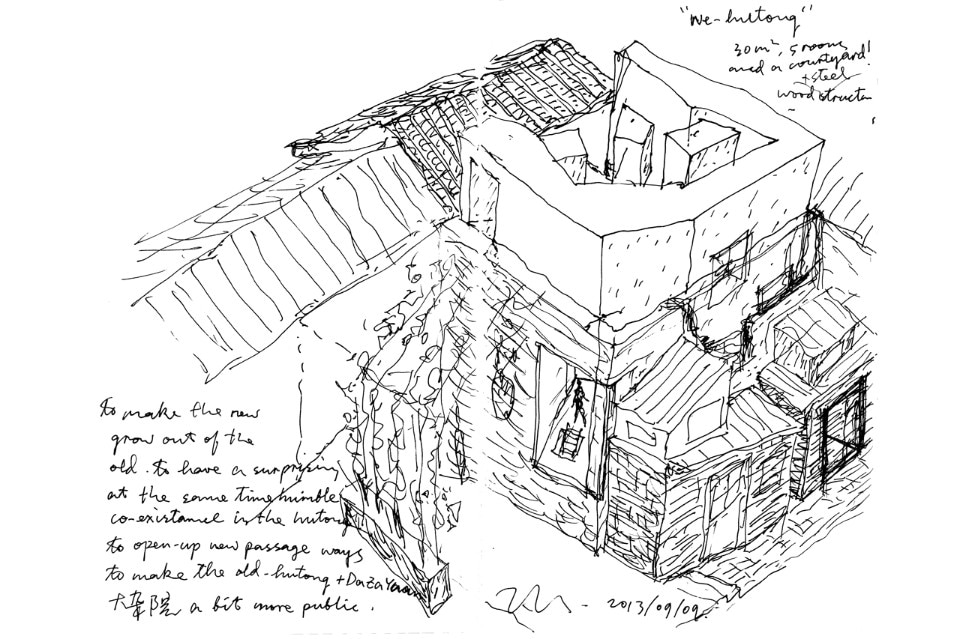 "we-hutong"
30m², 5 rooms
and a courtyard!
+ steel
wood structu
to make the new
grow out of the
old. to have a surprising
at the same time humble
co-existance in the hutong
to open-up new passage ways
to make the old-hutong + DaZaYuan
大杂院 a bit more public.
- 2013/09/09.